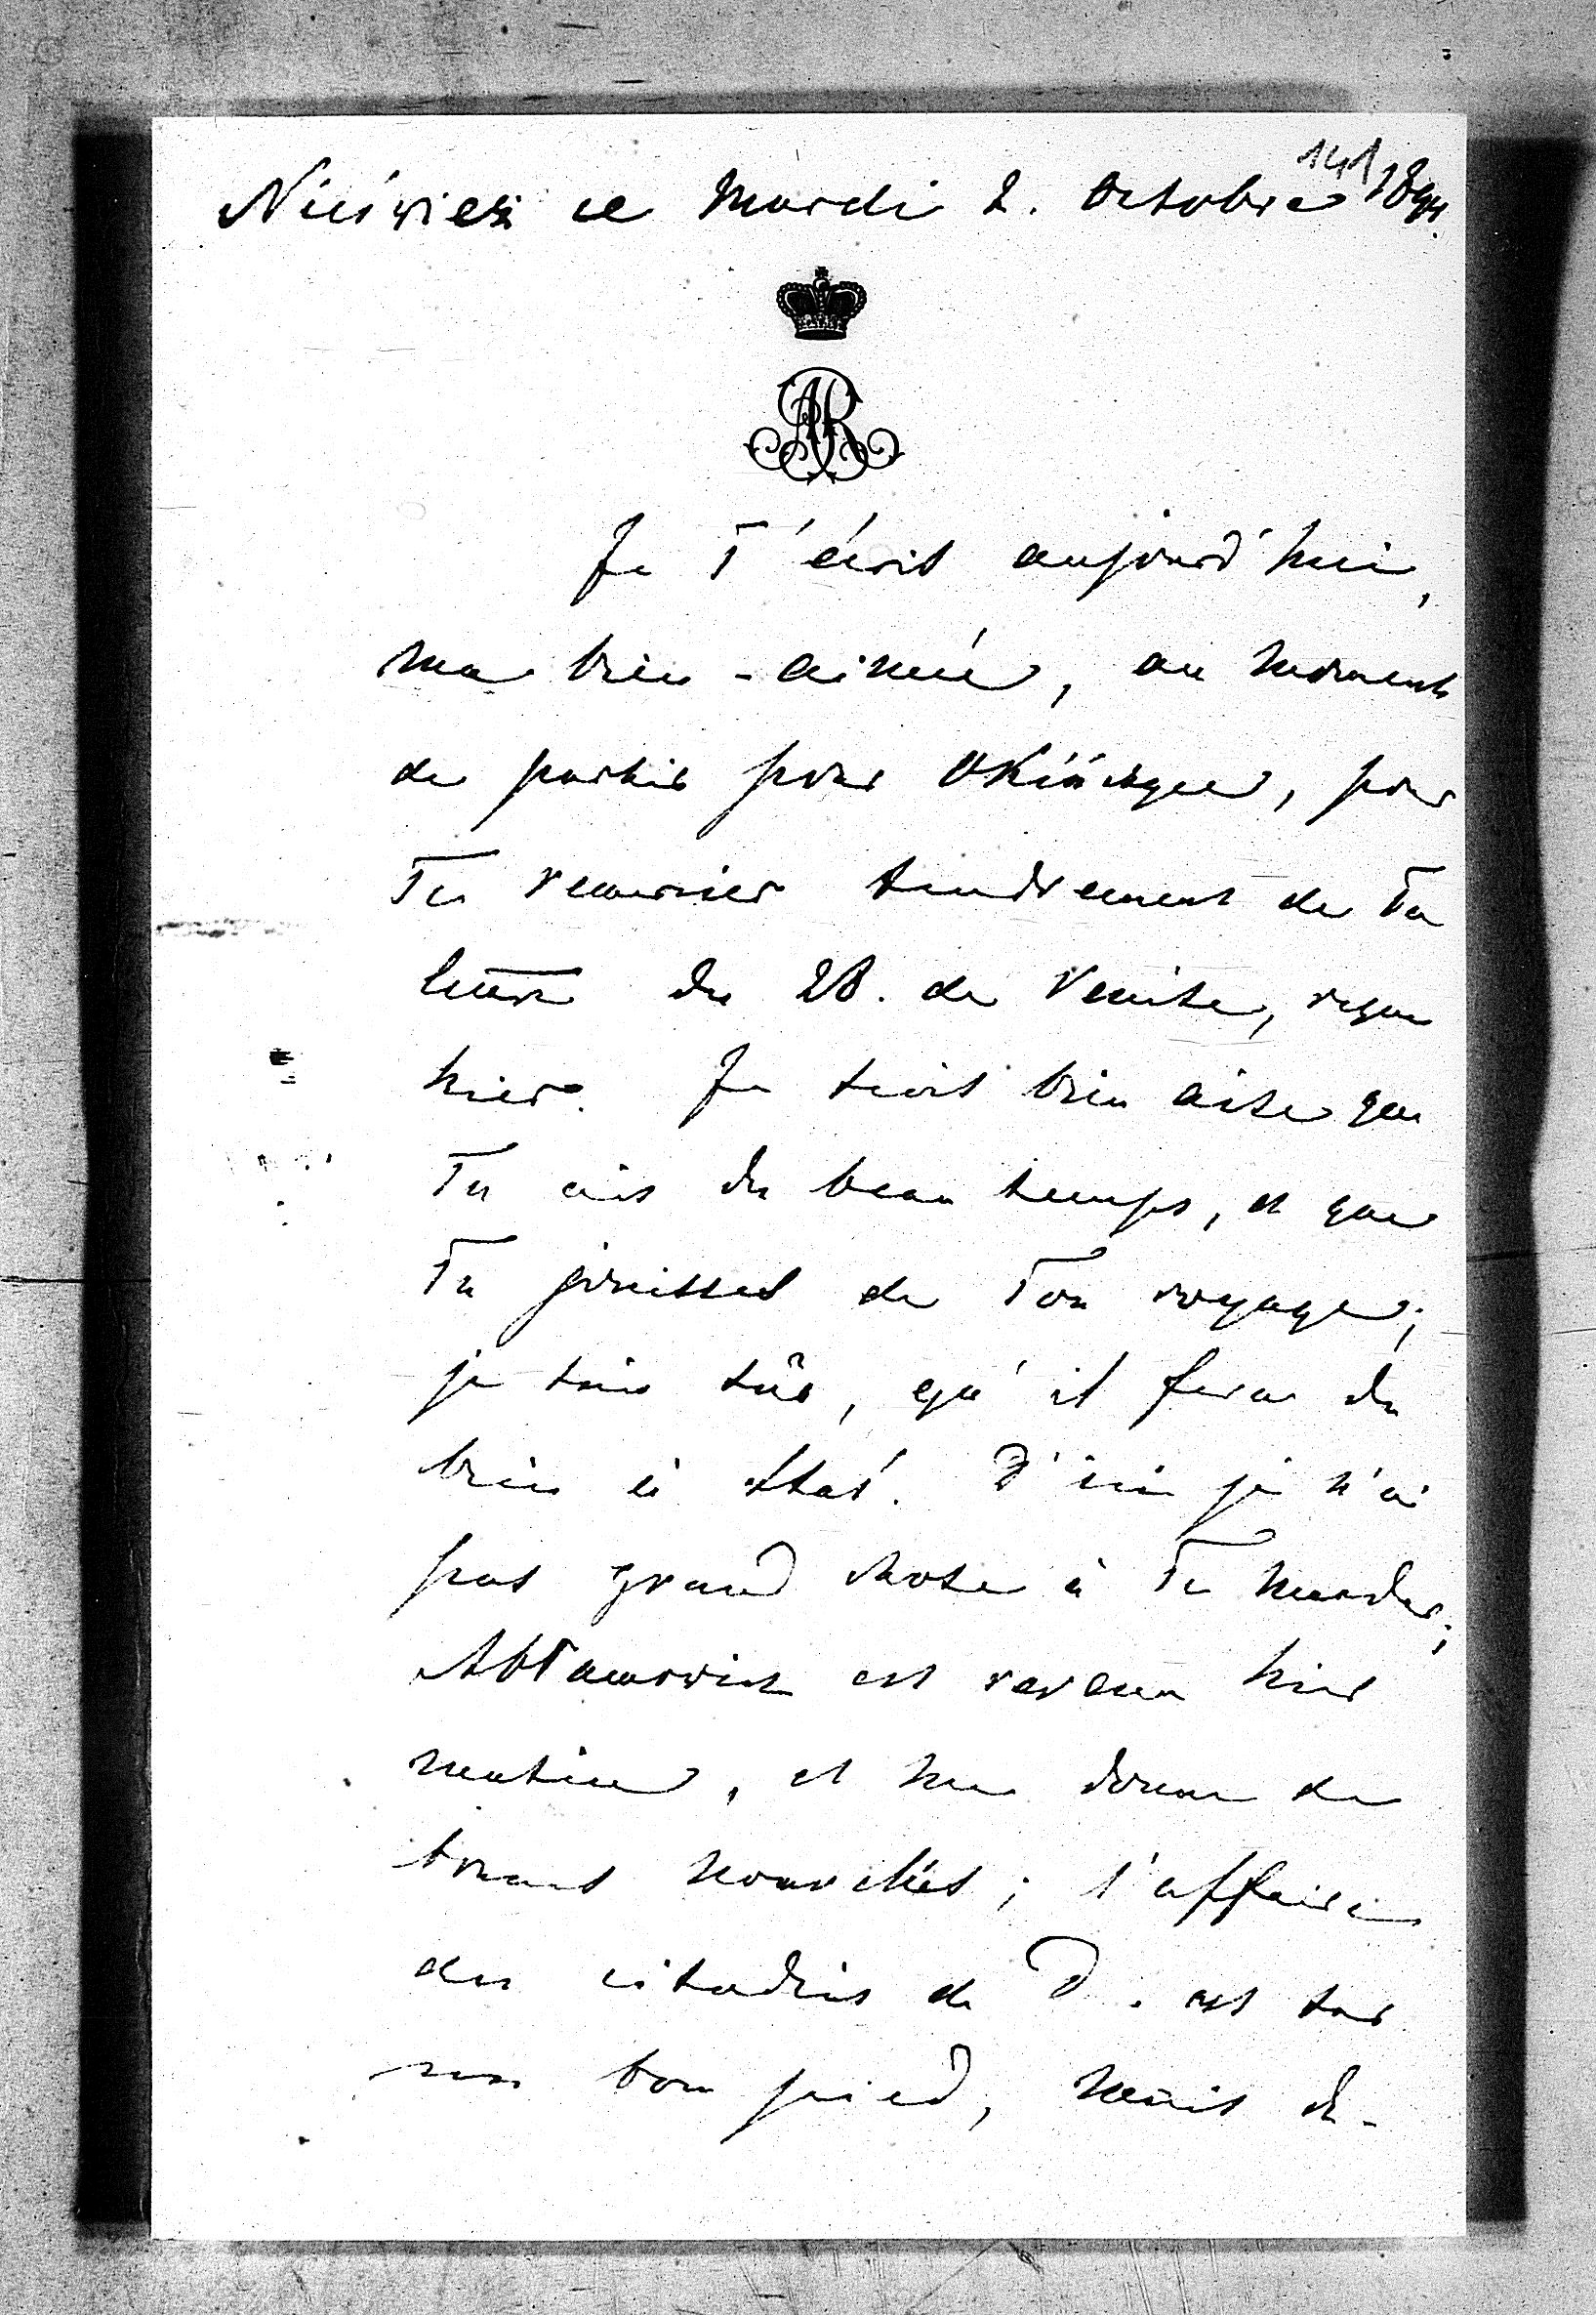 141
Nieśwież ce Mardi 2. Octobre 1894.
AR
Je T'écris aujourd'hui,
ma bien-aimée, au moment
de partir pour Okińczyce, pour
Te remercier tendrement de Ta
lettre du 28. de Venise, reçue
hier. Je suis bien aise que
Tu ais du beau temps, et que
Tu jouisses de Ton voyage;
je suis sûr, qu'il fera du
bien à Staś. D'ici je n'ai
pas grand chose à Te mander;
Abłamowicz est revenu hier
matin, et me donne de
bonnes nouvelles; l'affaire
des citadins de D. est sur
un bon pied, mais de-